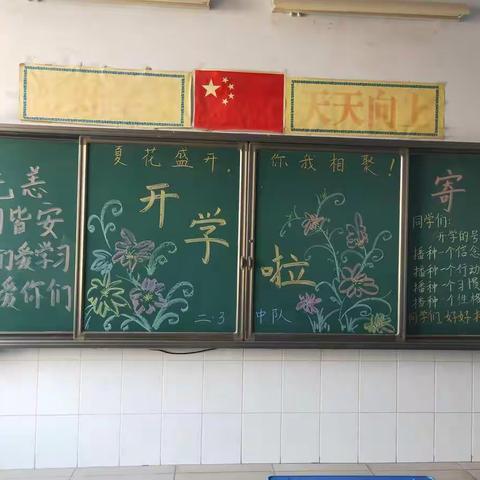 天天向上
恙
皆安
们爱学习
爱你们
夏花盛开,
你我相聚!
开学啦
二.3 中队
寄
同学们:
开学的号
播种一个信念
播种一个行动
播种一个习惯
播种一个性格
同学们,好好